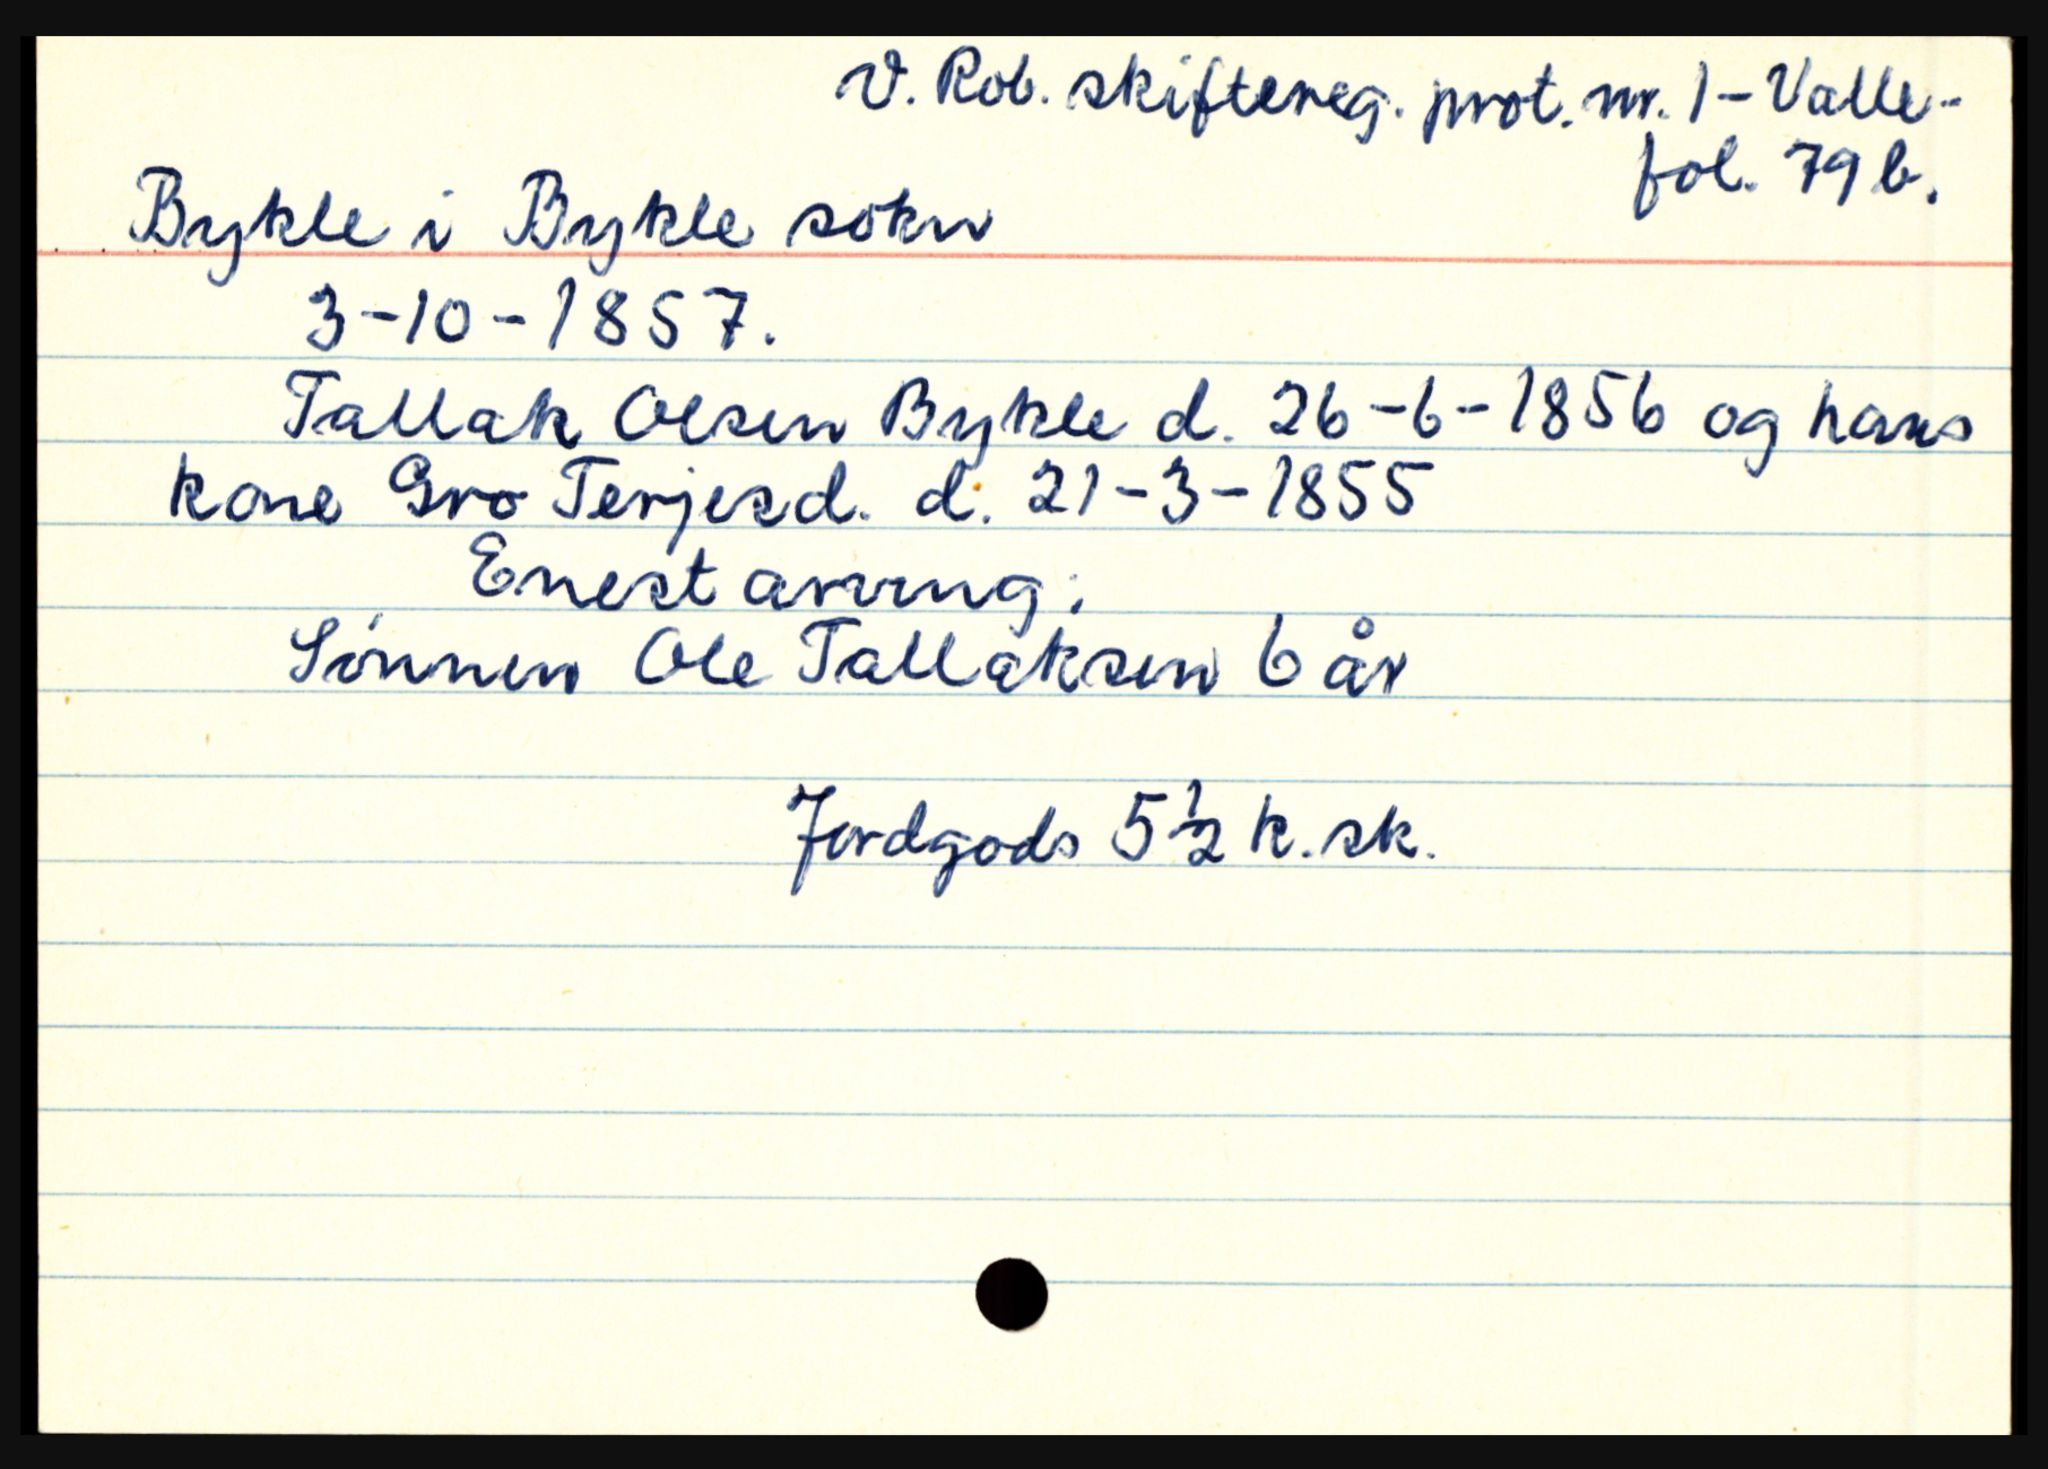 V. Rob. skiftereg. prot. nr. 1 - Valle -
fol. 79 b.
Bykle i Bykle sokn
3-10-1857.
Tallak Olsen Bykle d. 26-6-1856 og hans
kone Gro Terjesd. d. 21-3-1855
Enest arving:
Sønnen Ole Tallaksen 6 år
Jordgods 5 1/2 k. sk.